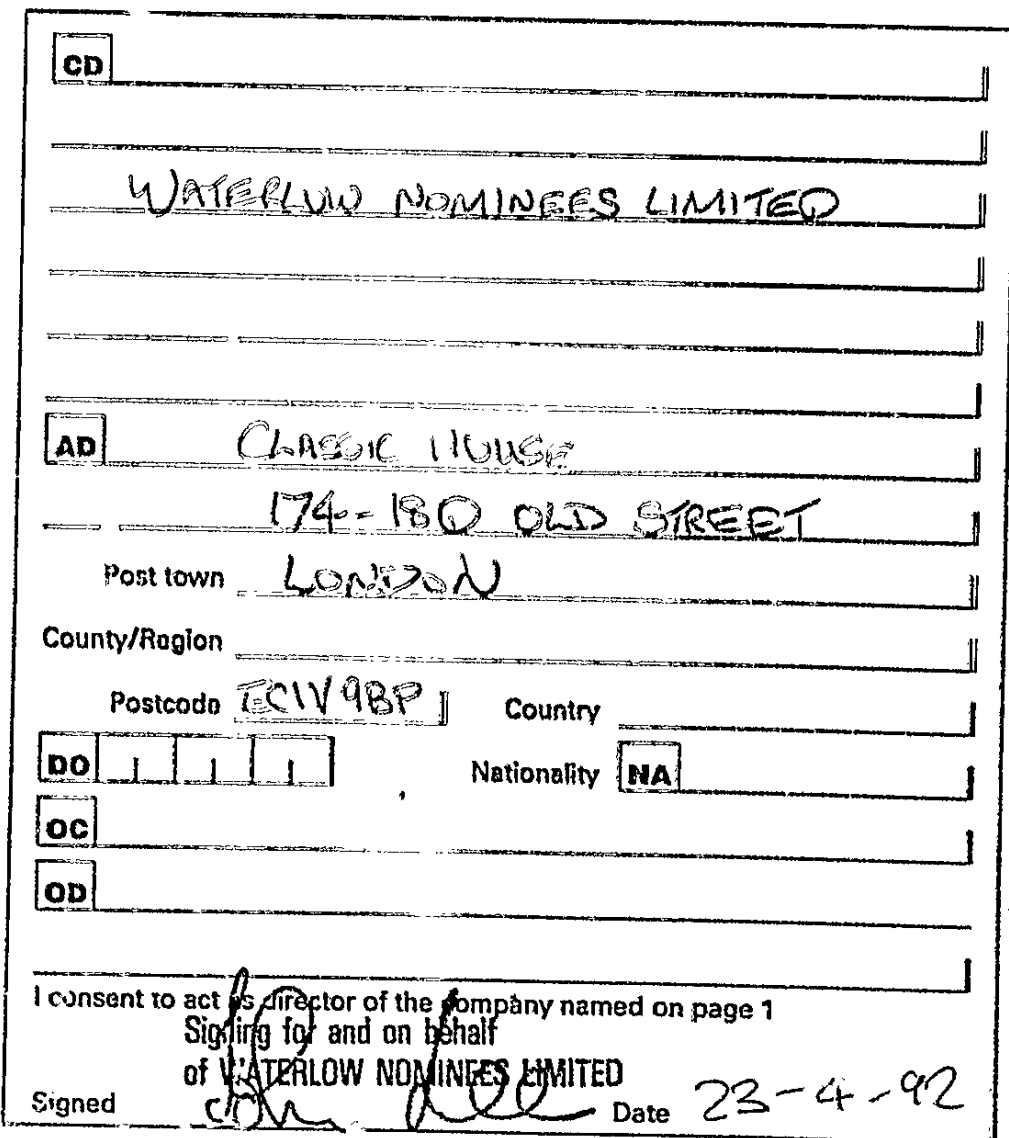 CD
WATERLOW NOMINEES LIMITED
AD CLASSIC HOUSE
174-180 OLD STREET
Post town LONDON
County/Region
Postcode EC1V 9BP Country
DO Nationality NA
OC
OD
I consent to act as director of the company named on page 1
Signing for and on behalf
of WATERLOW NOMINEES LIMITED
Signed Date 23-4-92